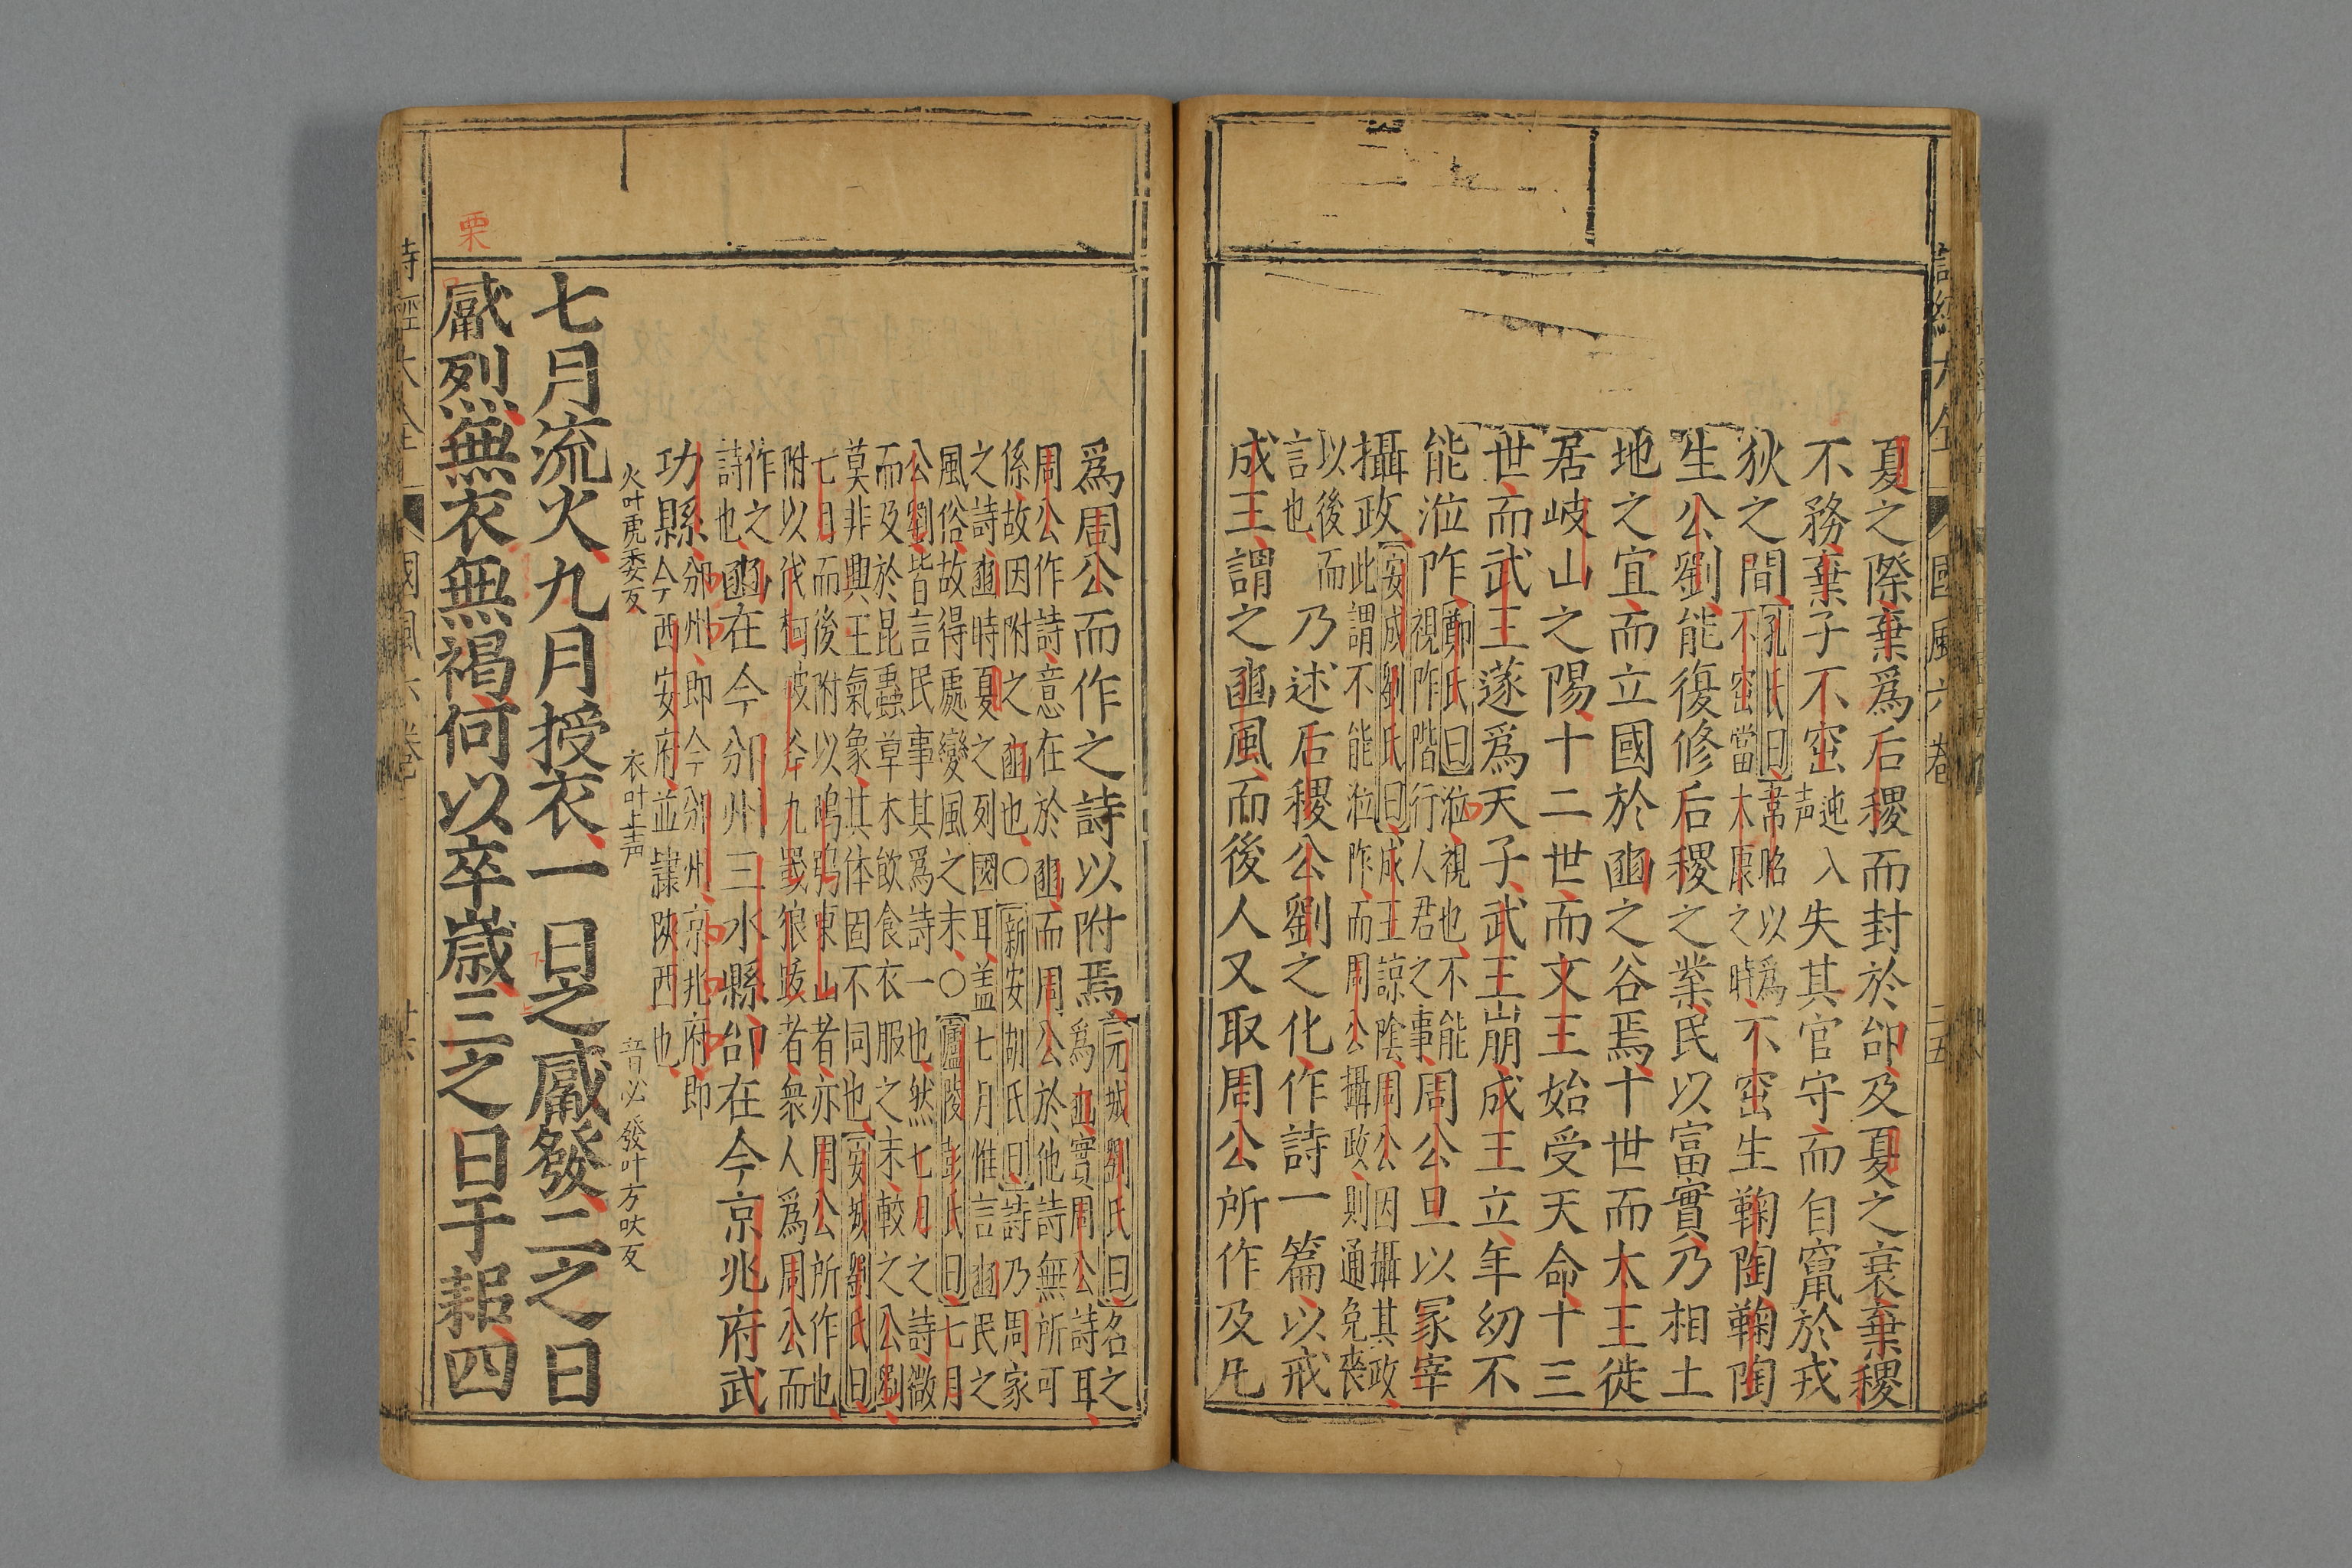 夏之際棄爲后稷而封於邰及夏之衰棄稷
不務棄子不窋
迍入
声
失其官守而自竄於戎
狄之間
孔氏曰韋昭以爲
不窋當太康之時
不窋生鞠陶鞠陶
生公劉能復修后稷之業民以富實乃相土
地之宜而立國於豳之谷焉十世而太王徙
居岐山之陽十二世而文王始受天命十三
世而武王遂爲天子武王崩成王立年幼不
能涖阼
鄭氏曰涖視也不能
視阼階行人君之事
周公旦以冢宰
攝政
安成劉氏曰成王諒陰周公因攝其政
此謂不能涖阼而周公攝政則通免喪
以後而
言也
乃述后稷公劉之化作詩一篇以戒
成王謂之豳風而後人又取周公所作及凡
詩經大全
國風六卷
二五
爲周公而作之詩以附焉
元城劉氏曰名之
爲豳實周公詩耳
周公作詩意在於豳而周公於他詩無所可
係故因附之豳也○新安胡氏曰詩乃周家
之詩豳時夏之列國耳盖七月惟言豳民之
風俗故得處變風之末○廬陵彭氏曰七月
公劉皆言民事其爲詩一也然七月之詩微
而及於昆蟲草木飲食衣服之末較之公劉
莫非興王氣象其体固不同也安城劉氏曰
七月而後附以鴟鴞東山者亦周公所作也
附以伐柯破斧九罭狼跋者衆人爲周公而
作之
詩也
豳在今邠州三水縣邰在今京兆府武
功縣
邠州即今邠州京兆府即
今西安府並隷陜西也
七月流火
火叶虎委反
九月授衣
衣叶上声
一日之觱發
音必發叶方吠反
二之日
觱烈無衣無褐何以卒歲三之日于耜四
栗
詩經大全
國風六卷